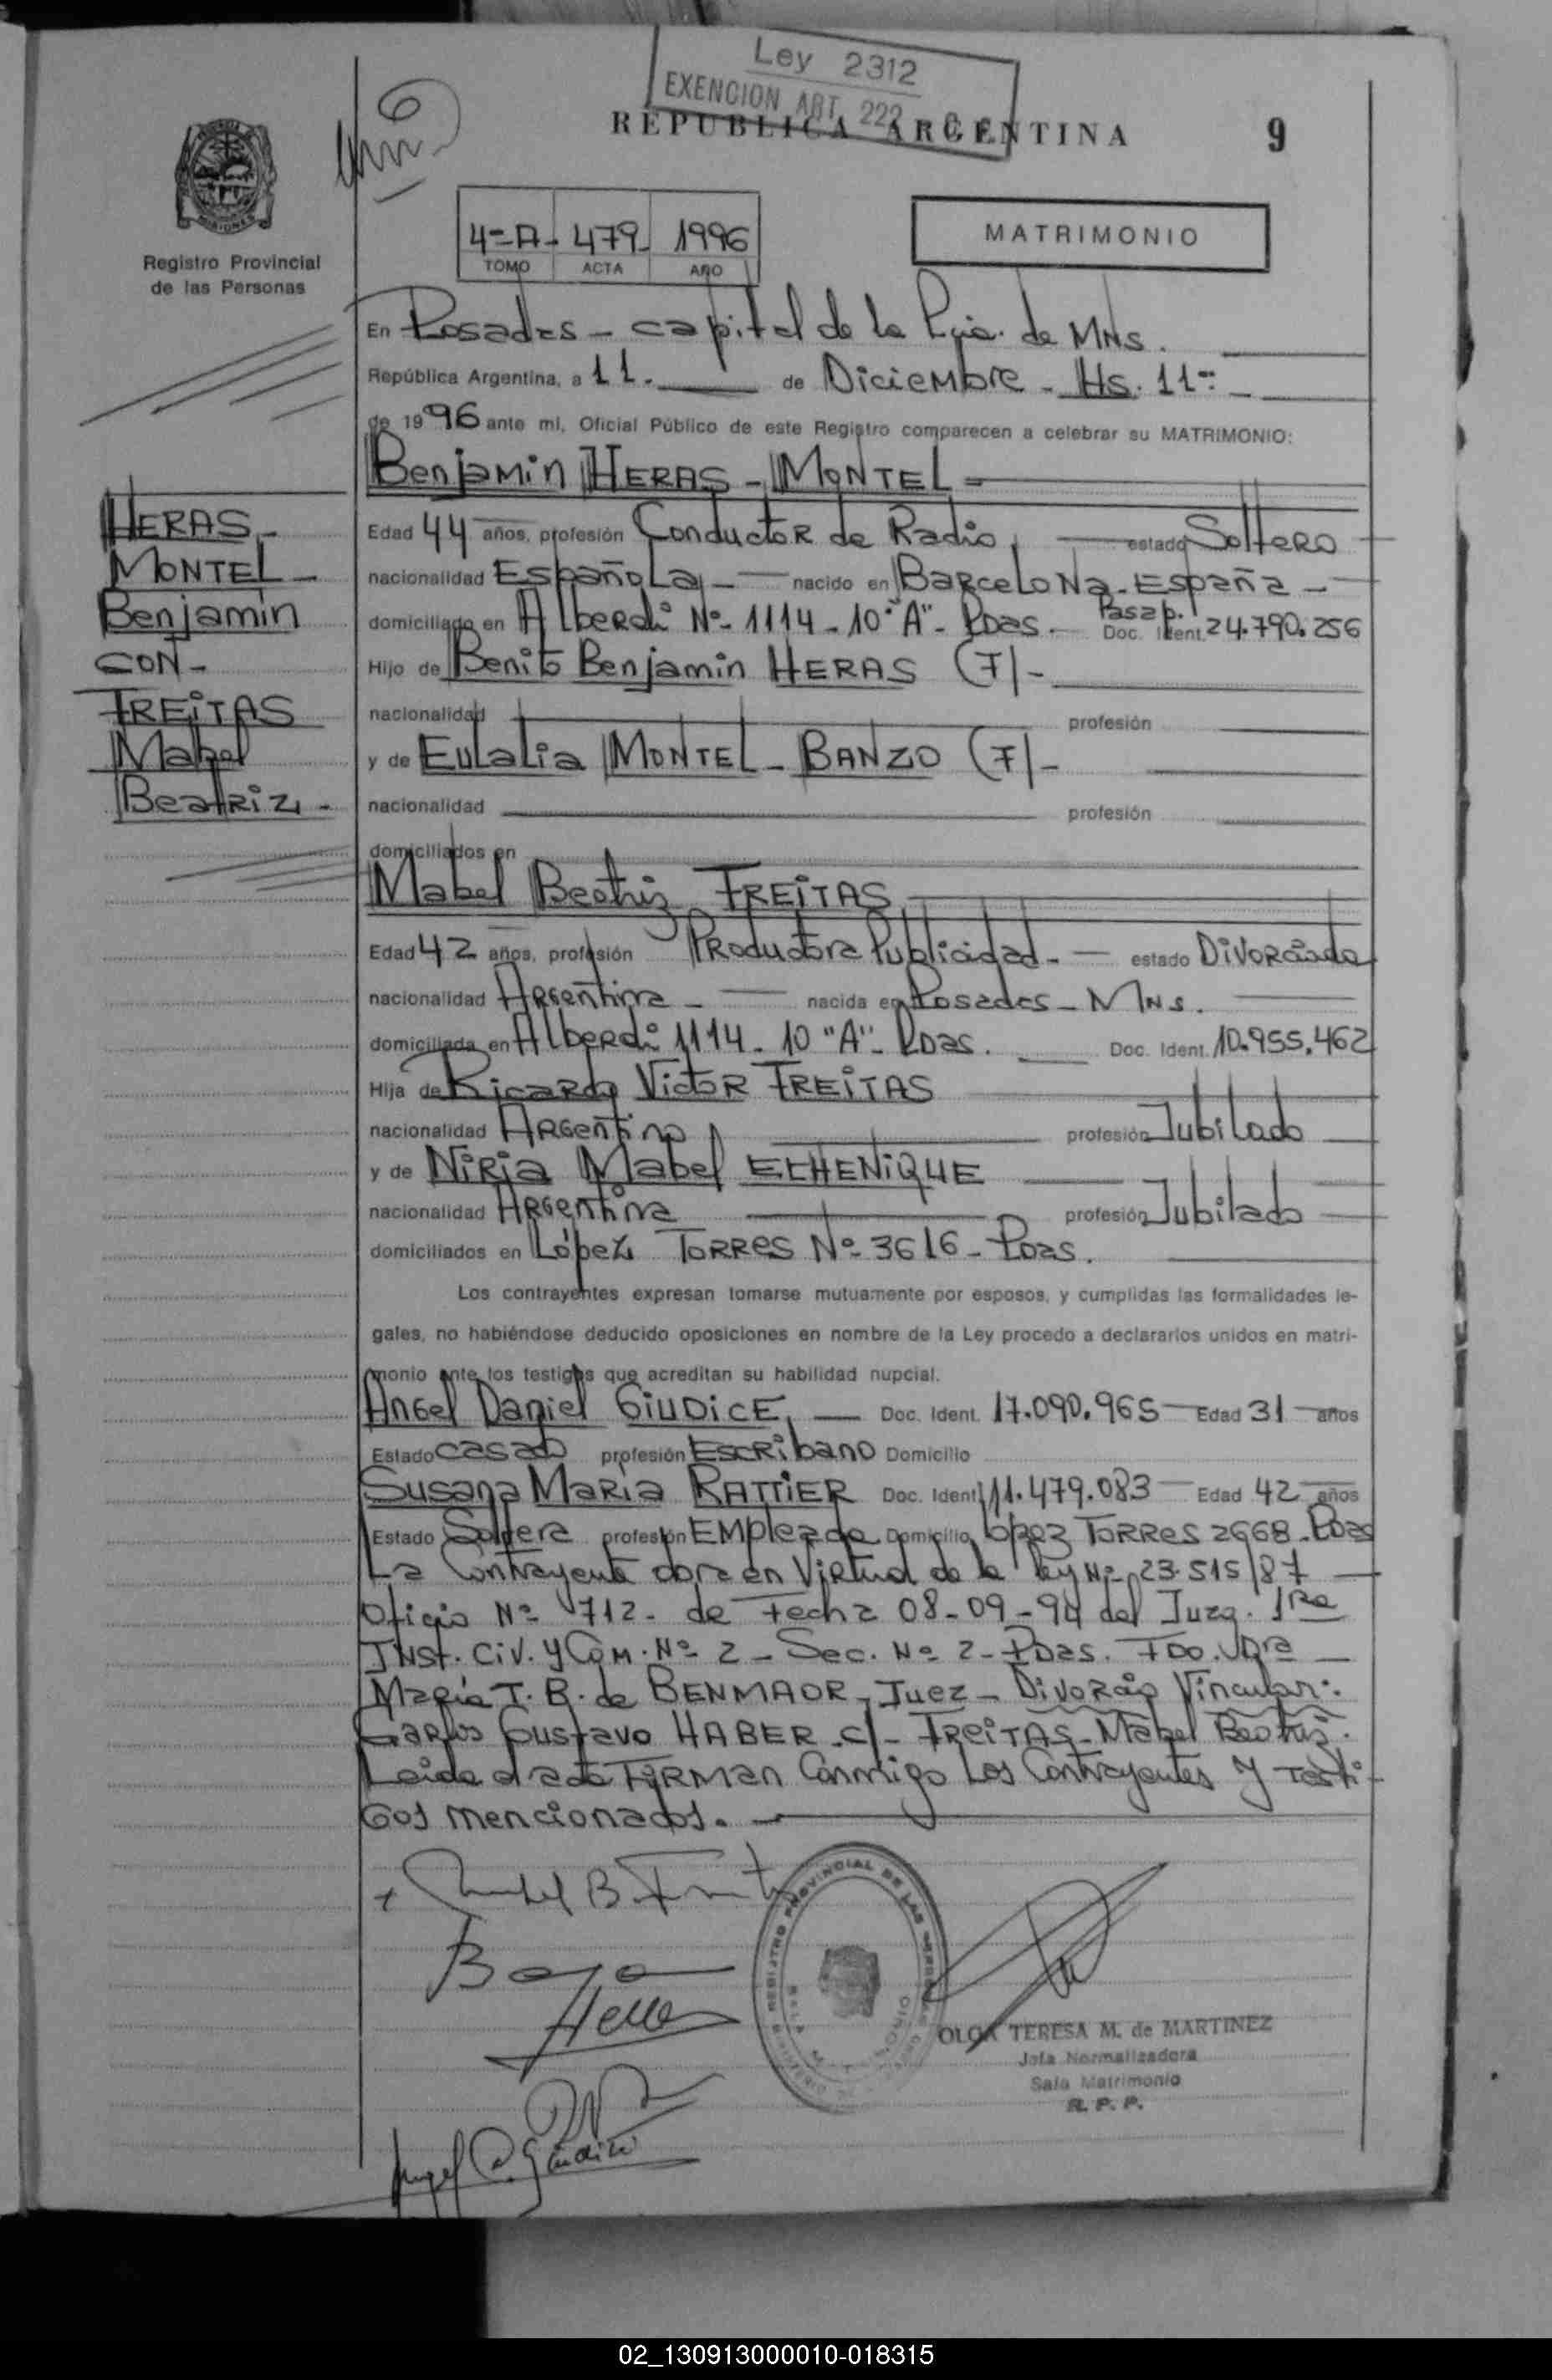 Ley 2312
EXENCION ART. 222
REPUBLICA ARGENTINA
9
4º-A- 479- 1996
TOMO ACTA AÑO
MATRIMONIO
Registro Provincial
de las Personas
En Posadas - capital de la Pcia. de MNS.
República Argentina, a 11. de Diciembre - Hs. 11:
de 1996 ante mí, Oficial Público de este Registro comparecen a celebrar su MATRIMONIO:
Benjamin HERAS - MONTEL
HERAS
MONTEL
Benjamin
CON
FREITAS
Mabel
Beatriz
Edad 44 años, profesión Conductor de Radio, estado Soltero
nacionalidad Española nacido en Barcelona - España
domiciliado en Alberdi Nº 1114 - 10 "A" - Pdas. Pasap. Doc. Ident. 24.790.256
Hijo de Benito Benjamin HERAS (F)
nacionalidad profesión
y de Eulalia MONTEL - BANZO (F)
nacionalidad profesión
domiciliados en
Mabel Beatriz FREITAS
Edad 42 años, profesión Productora Publicidad - estado Divorciada
nacionalidad Argentina - nacida en Posadas - MNS.
domiciliada en Alberdi 1114 - 10 "A" - Pdas. Doc. Ident. 10.955.462
Hija de Ricardo Victor FREITAS
nacionalidad Argentino profesión Jubilado
y de Niria Mabel ECHENIQUE
nacionalidad Argentina profesión Jubilado
domiciliados en López Torres Nº 3616 - Pdas.
Los contrayentes expresan tomarse mutuamente por esposos, y cumplidas las formalidades le-
gales, no habiéndose deducido oposiciones en nombre de la Ley procedo a declararlos unidos en matri-
monio ante los testigos que acreditan su habilidad nupcial.
Angel Daniel GIUDICE, Doc. Ident. 17.090.965 Edad 31 años
Estado casado profesión Escribano Domicilio
Susana Maria RATTIER Doc. Ident. 11.479.083 Edad 42 años
Estado Soltera profesión Empleada Domicilio López Torres 2668 - Pdas
La Contrayente obra en Virtud de la ley Nº 23.515/87
Oficio Nº 712 - de Fecha 08-09-94 del Juzg. 1ra
Inst. Civ. y Com. Nº 2 - Sec. Nº 2 - Pdas. FDO. Dra
María T. B. de BENMAOR, Juez - Divorcio Vincular:
Carlos Gustavo HABER c/ FREITAS - Mabel Beatriz.
Leida el acta Firman Conmigo Los Contrayentes y Testi-
gos mencionados.
OLGA TERESA M. de MARTINEZ
Jefa Normalizadora
Sala Matrimonio
R. P. P.
02_130913000010-018315